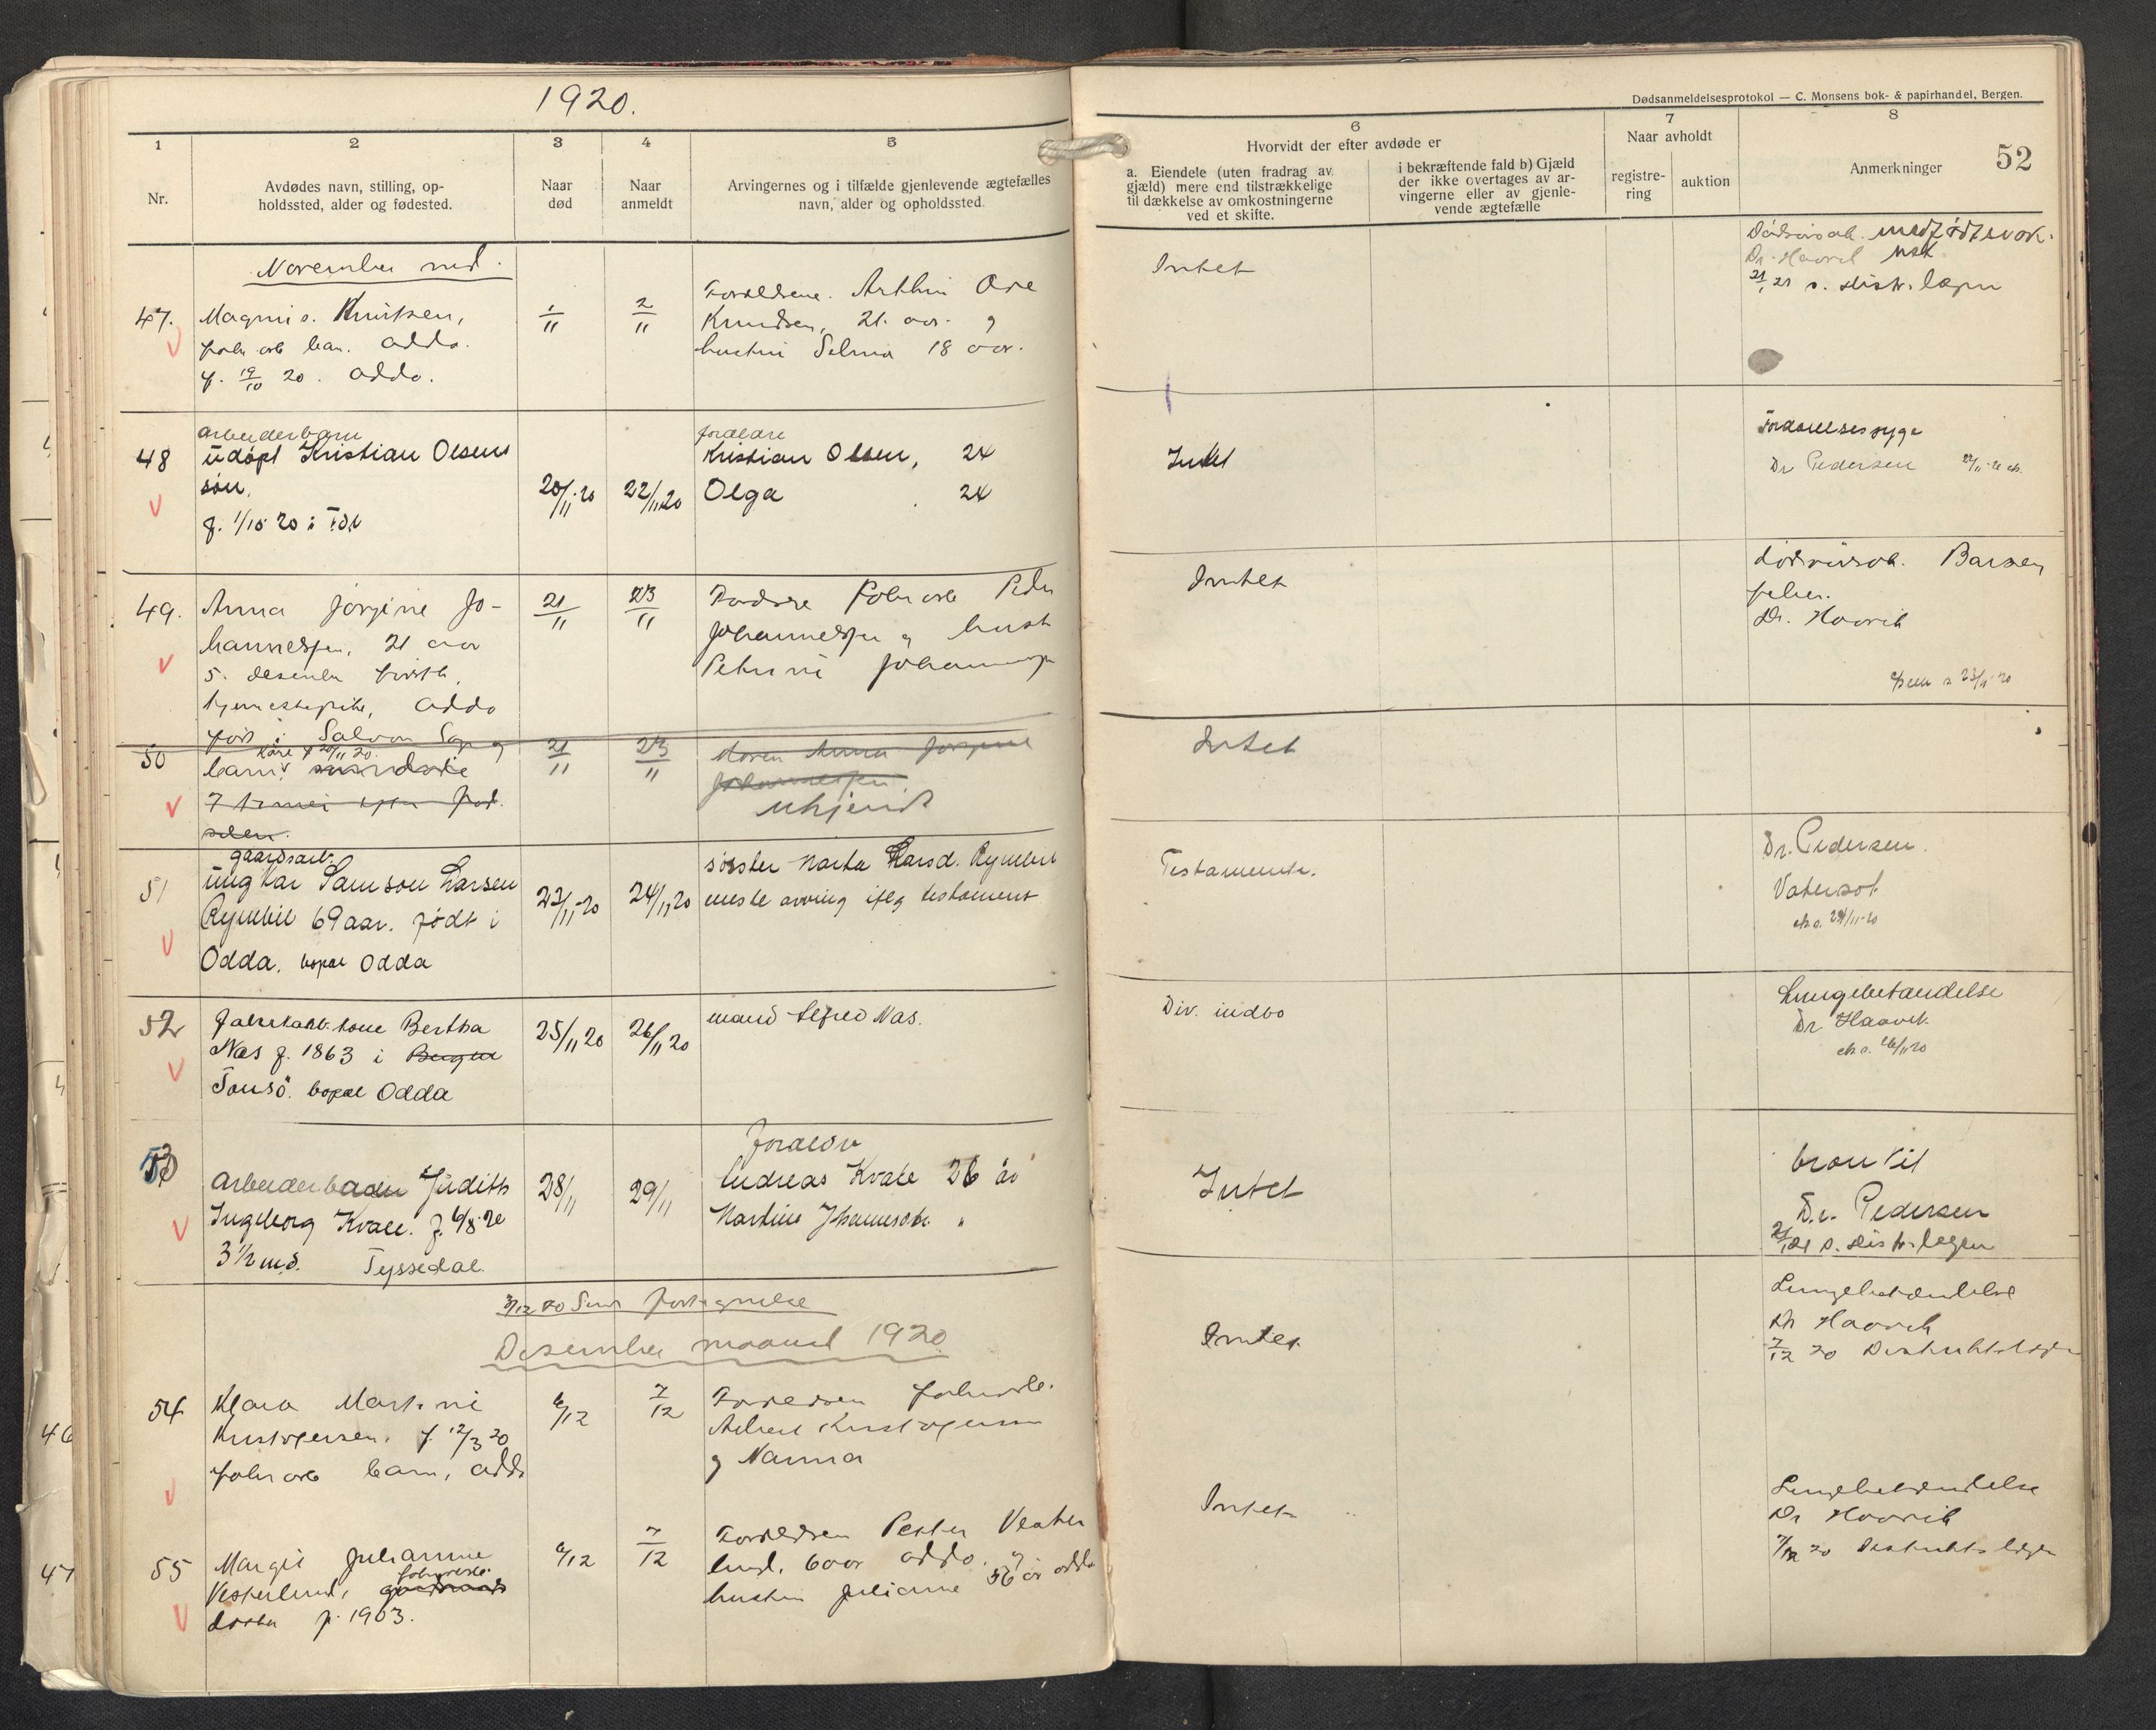 1920.
Dødsanmeldelsesprotokol — C. Monsens bok- & papirhandel, Bergen.
52
1
2
3
4
5
6
7
8
Nr.
Avdødes navn, stilling, op-
holdssted, alder og fødested.
Naar
død
Naar
anmeldt
Arvingernes og i tilfælde gjenlevende ægtefælles
navn, alder og opholdssted
Hvorvidt der efter avdøde er
a. Eiendele (uten fradrag av
gjæld) mere end tilstrækkelige
til dækkelse av omkostningerne
ved et skifte.
i bekræftende fald b) Gjæld
der ikke overtages av ar-
vingerne eller av gjenle-
vende ægtefælle
Naar avholdt
registre-
ring
auktion
Anmerkninger
November md.
47.
Magnus Knutsen,
fabr arb barn. Odda.
f. 19/10 20. Odda.
1/11
2/11
Forældrene. Arthur Ove
Knudsen, 21. aar. og
hustru Selma 18 aar.
Intet
Dødsårsak. medfødt svak-
Dr. Haavik
21/1 21 s. distr. lægen
48
arbeiderbarn
udøpt Kristian Olsens
søn.
f. 1/10 20 i
20/11-20
22/11 20
foreldre
Kristian Olsen, 24
Olga 24
Intet
Dr Pedersen
49.
Anna Jørgine Jo-
hannessen, 21 aar
5. desember
tjenestepike, Odda
21/11
23/11
Fabr arb Peder
Johannessen og hust
Petrine Johannessen
Intet
dødsårsak. Barsel
feber.
Dr. Haavik
23/11-20
50
Kåre f 20/11 20.
barn,
7 timer efter fød-
selen.
21/11
23/11
Moren Anna Jørgine
Johannessen
ukjendt
Intet
51
gaardsarb.
ungkar Samson Larsen
Rymbil 69 aar. født i
Odda. bopæl Odda
23/11-20
24/11 20
søster Marta Larsd. Ryubil
eneste arving iflg testament
Testamente.
Dr. Pedersen.
Vatersot
24/11-20
52
Fabrikarb. kone Bertha
Nas f. 1863 i Bergen
bopæl Odda
25/11 20
26/11 20
mand Alfred Nas.
Div. indbo
Lungebetændelse
Dr. Haavik
26/11 20
53
Arbeiderbarn Judith
Ingeborg Kvale. f. 6/8-20
3 1/2 md. Tyssedal
28/11
29/11
Foreldre
Andreas Kvale 26 år
Martine
Intet
bronkit
Dr. Pedersen
21/1 21 s. distr. lægen
3/12 20 Sendt fortegnelse
Desember maaned 1920.
54
Klara Martine
Kristofersen. f. 12/3 20
fabr arb barn, Odda
6/12
7/12
Forældrene fabrarb.
Albert Kristofersen
og Nanna
Intet.
Lungebetændelse
Dr Haavik
7/12 20 Distriktslægen
55
Margit Julianne
fabrarb.
Vesterlund,
datter f. 1903.
6/12
7/12
Forældrene Petter Vester
lund. 60 aar Odda. og
hustru Julianne 56 år Odda
Intet
Lungebetændelse
Dr Haavik
7/12 20 Distriktslægen
46
47